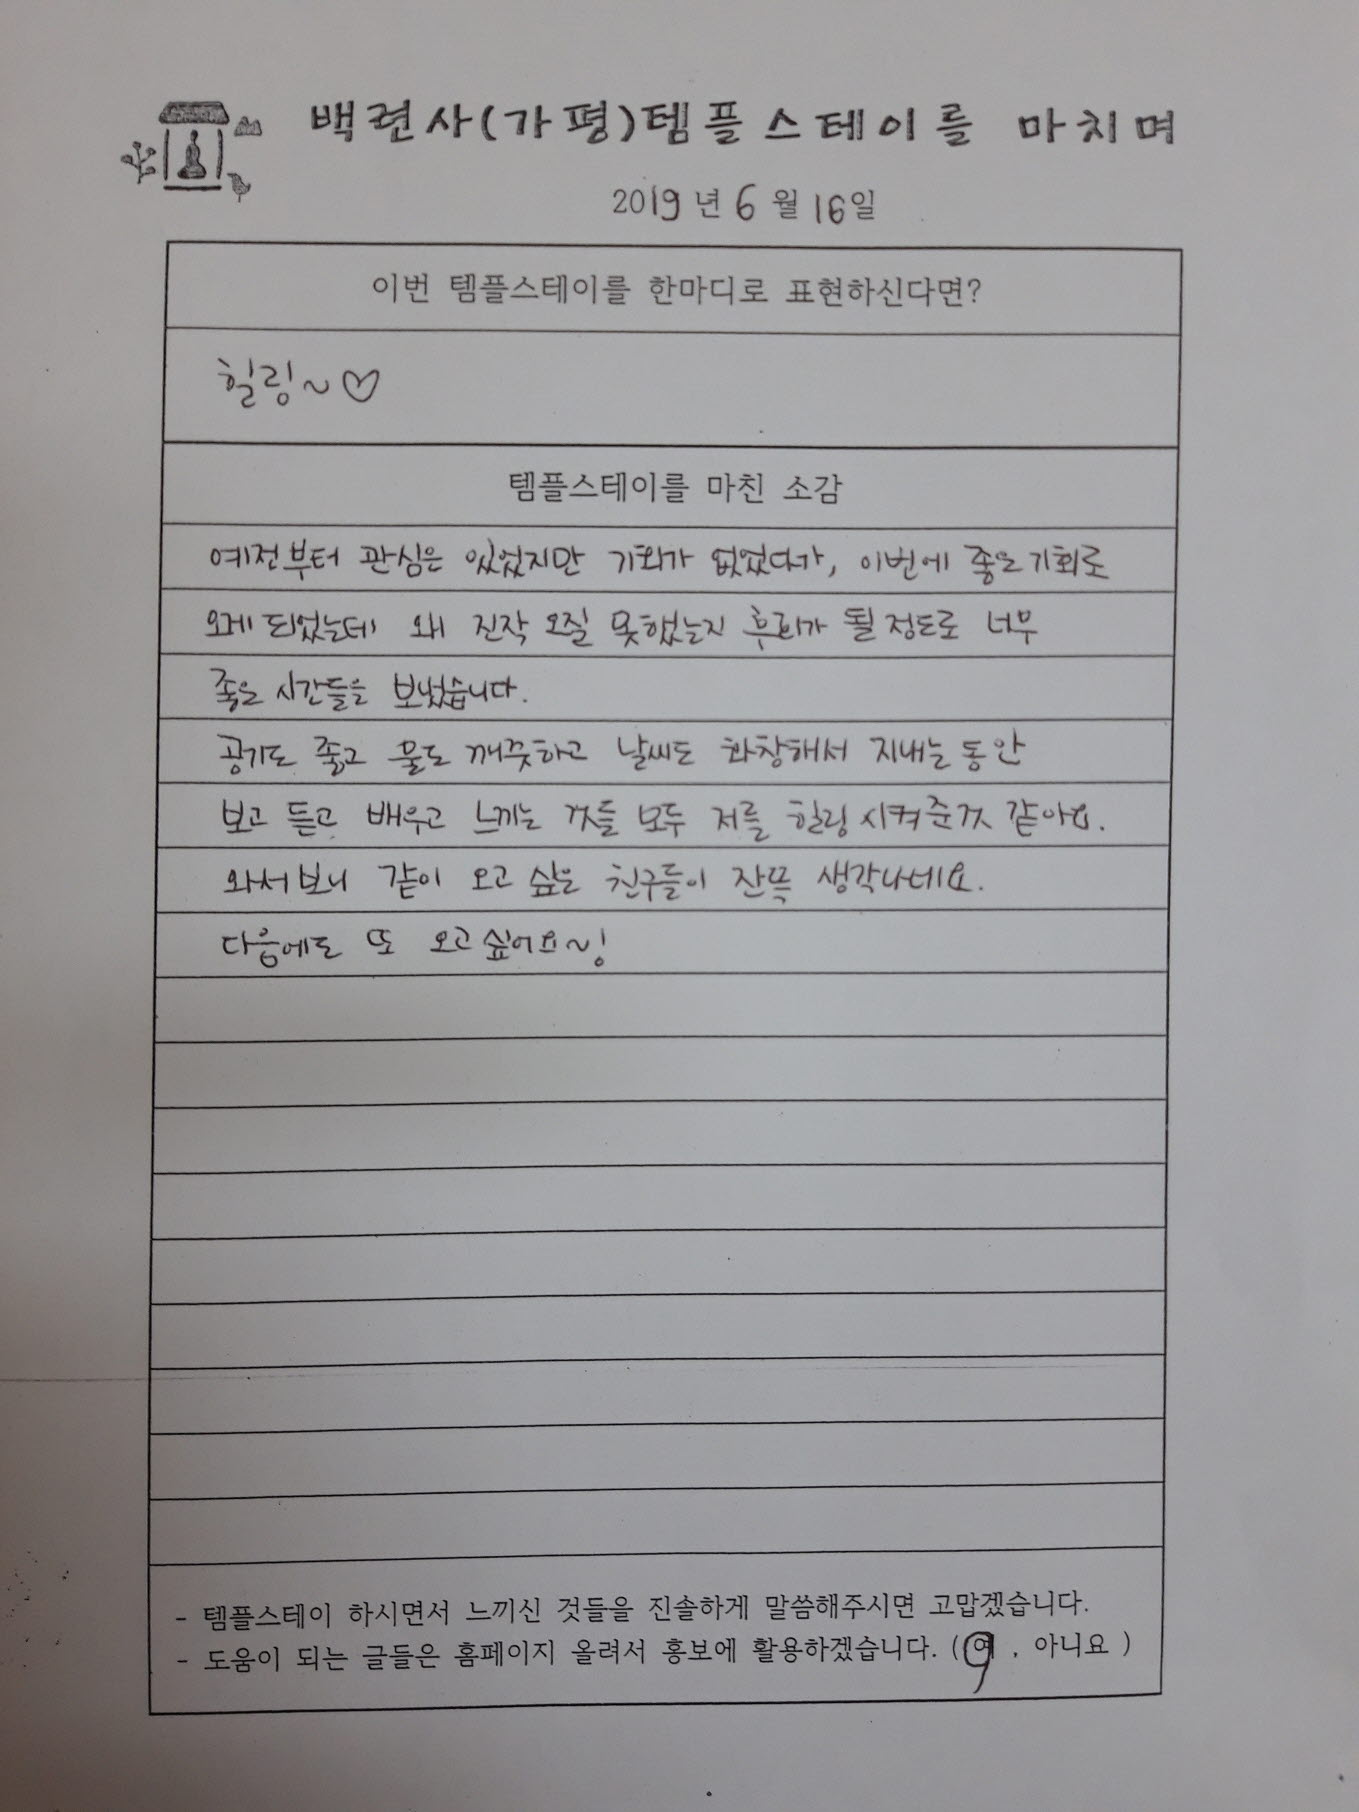 백련사(가평)템플스테이를 마치며
2019년 6월 16일
이번 템플스테이를 한마디로 표현하신다면?
힐링~♡
템플스테이를 마친 소감
예전부터 관심은 있었지만 기회가 없었다가, 이번에 좋은기회로
오게되었는데 왜 진작 오질 못했는지 후회가 될 정도로 너무
좋은 시간들을 보냈습니다.
공기도 좋고 물도 깨끗하고 날씨도 화창해서 지내는동안
보고 듣고 배우고 느끼는 것들 모두 저를 힐링시켜준것 같아요.
와서보니 같이 오고 싶은 친구들이 잔뜩 생각나네요.
다음에도 또 오고싶어요~!
- 템플스테이 하시면서 느끼신 것들을 진솔하게 말씀해주시면 고맙겠습니다.
- 도움이 되는 글들은 홈페이지 올려서 홍보에 활용하겠습니다. (예 , 아니요 )